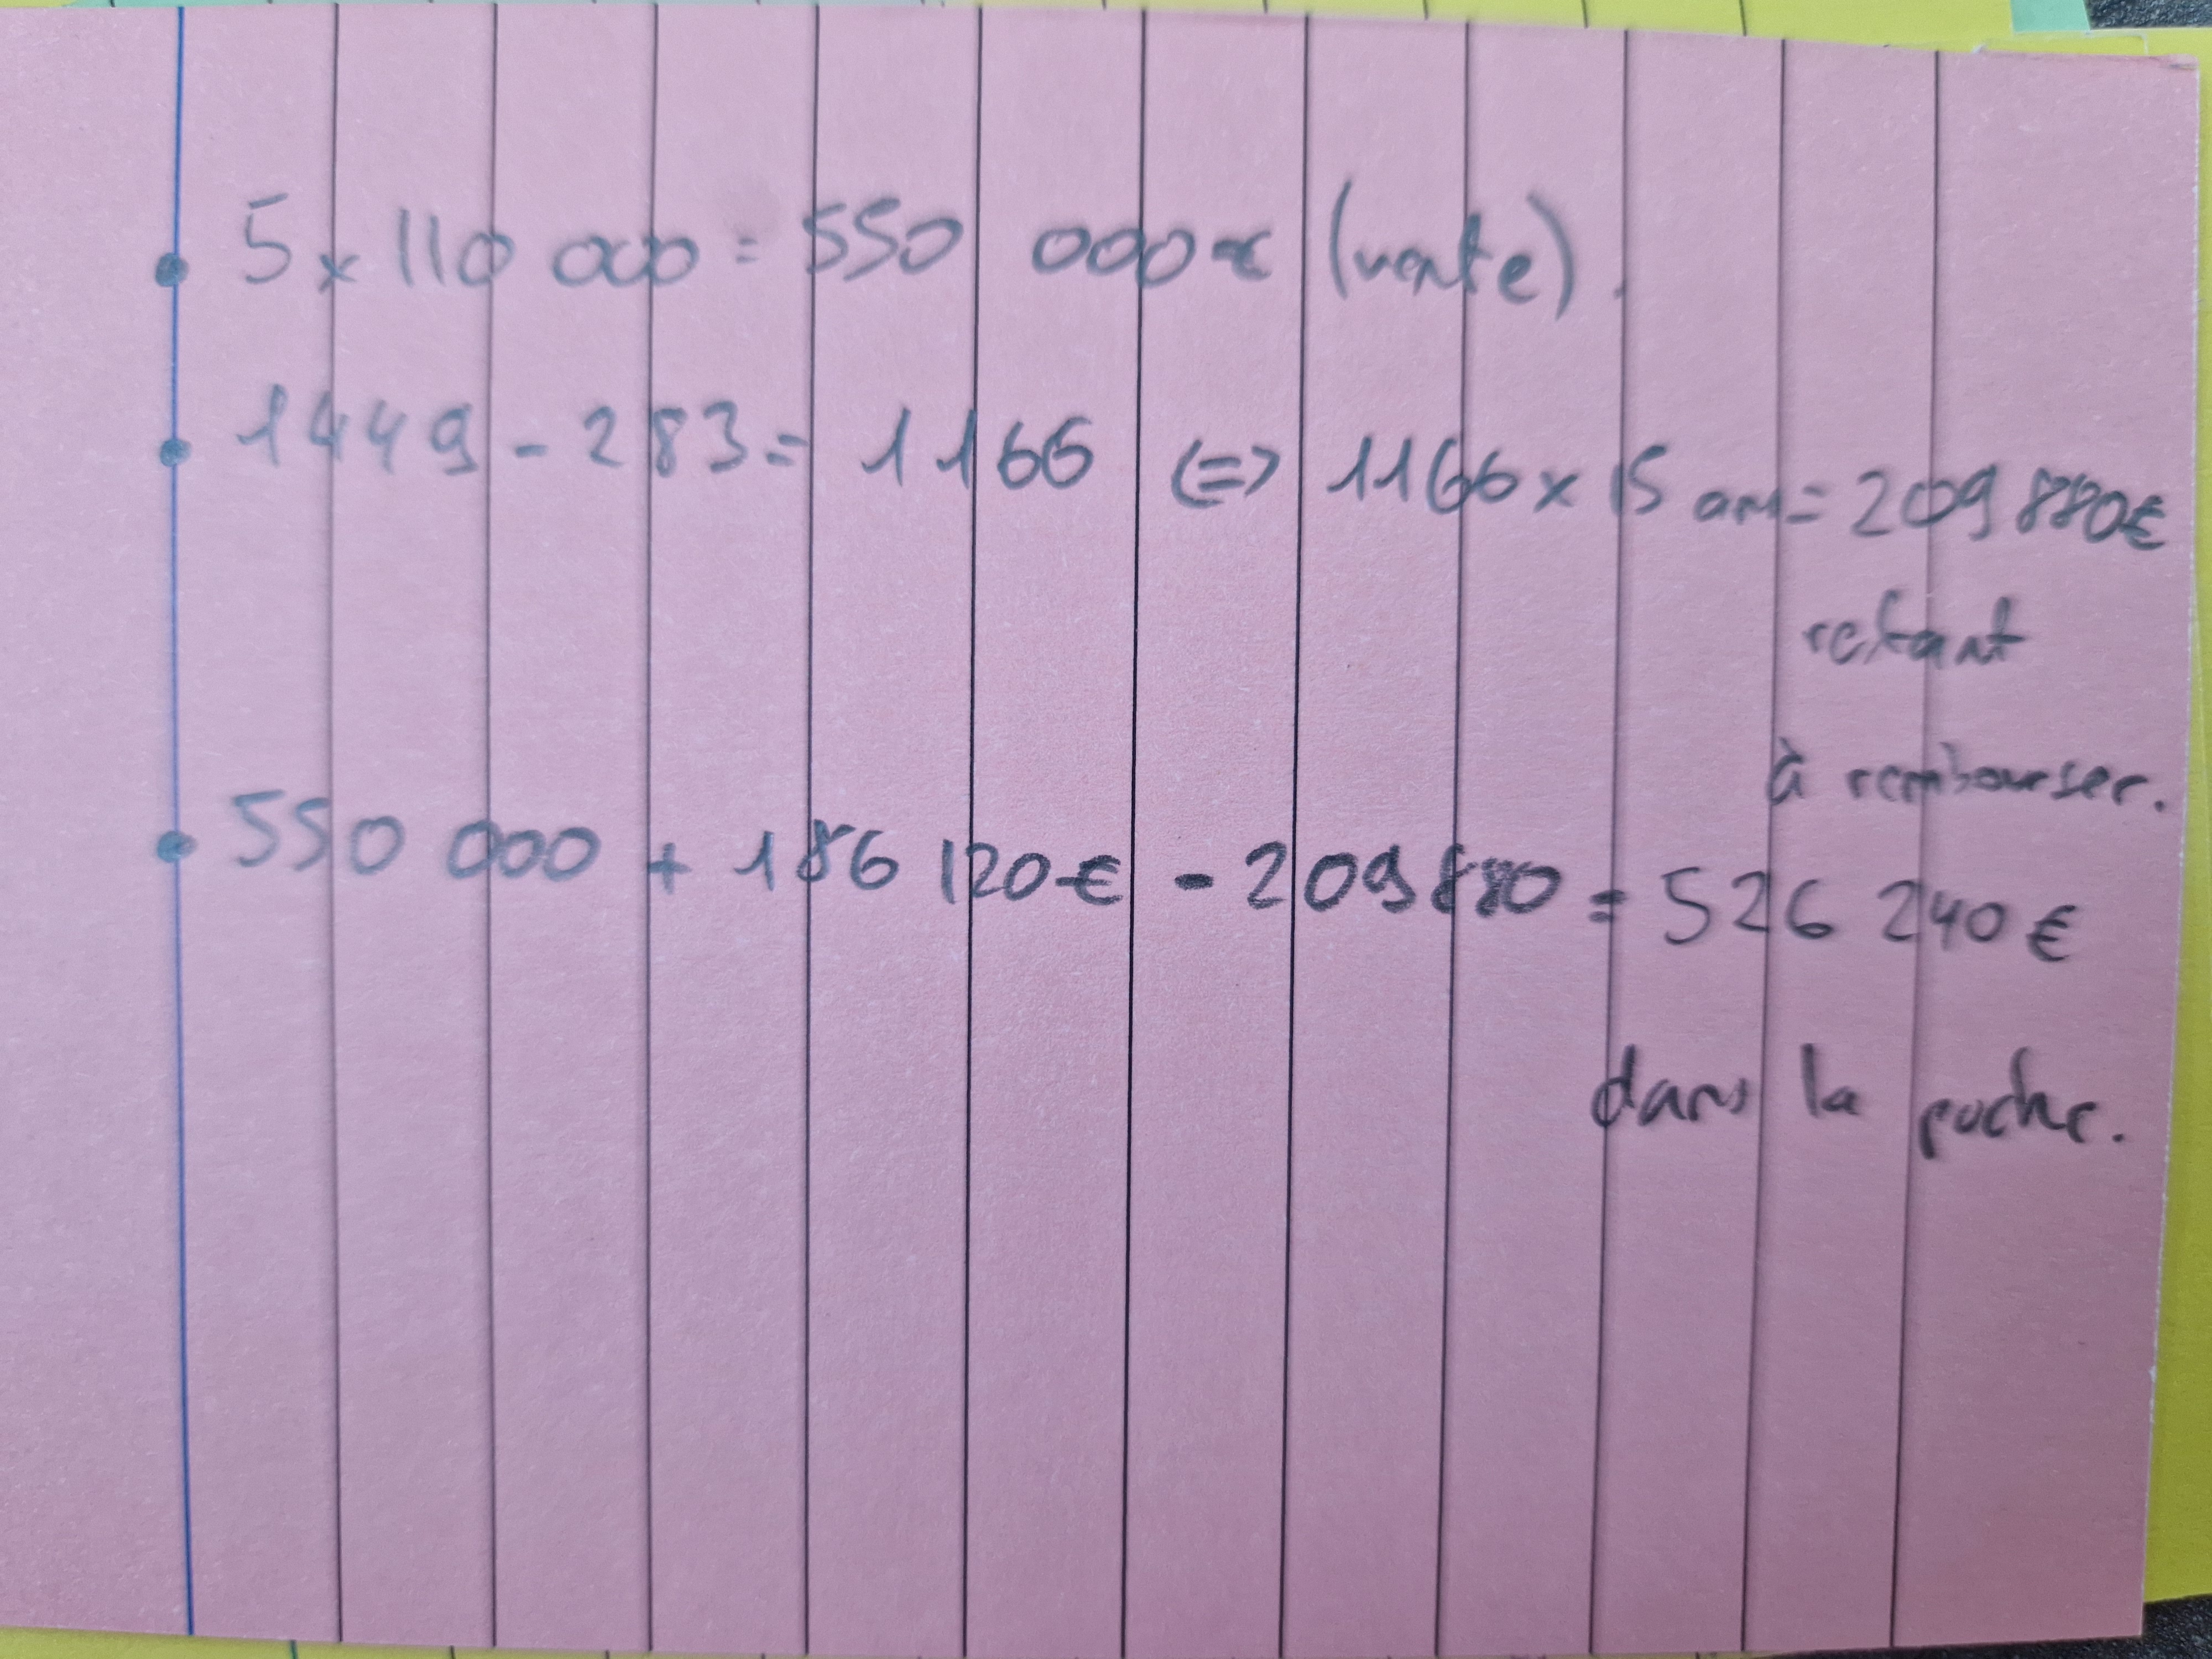 • 5 x 110 000 = 550 000 € (vente).
• 1449 - 283 = 1166 <=> 1166 x 15 ans = 209 880€
restant
à rembourser.
• 550 000 + 186 120 € - 209 880 = 526 240 €
dans la poche.